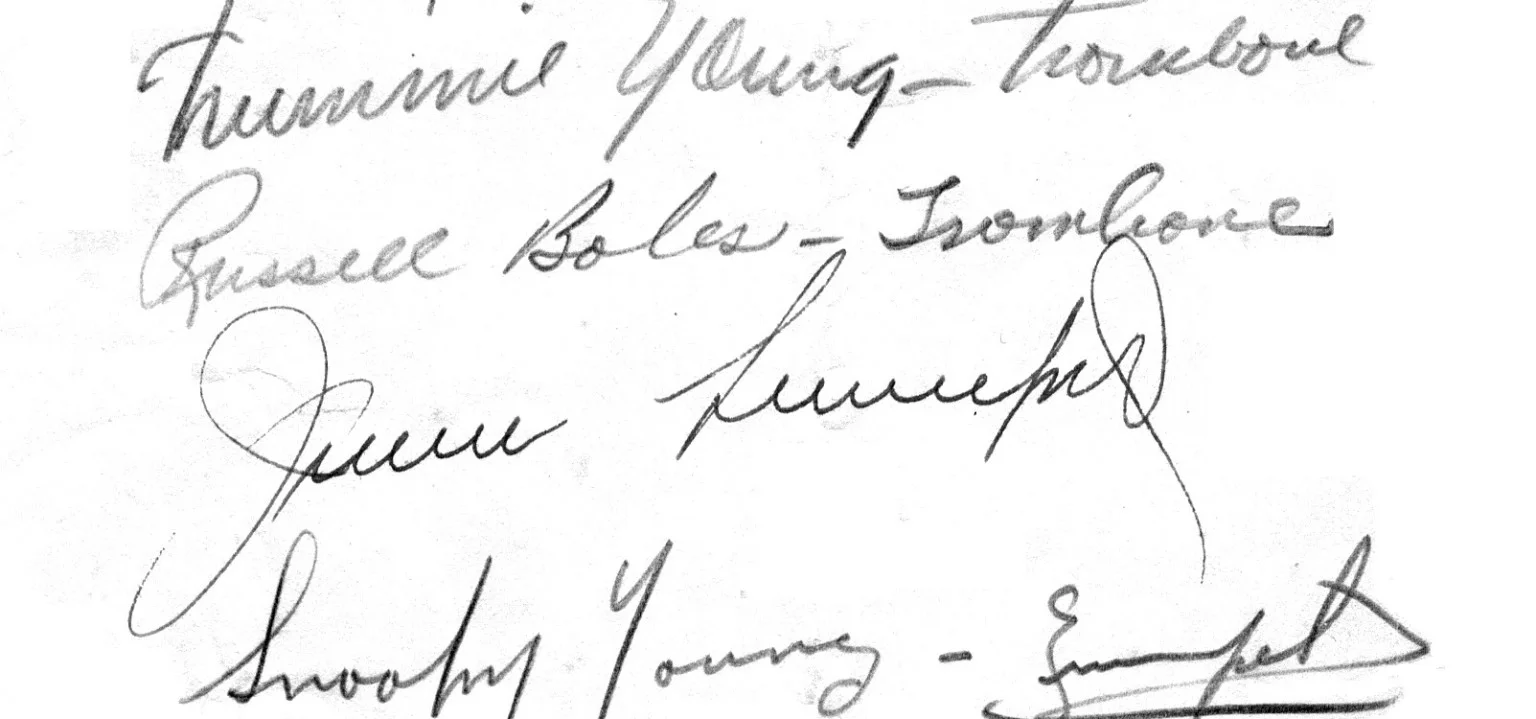 Trummie Young – Trombone
Russell Boles – Trombone
Jimmie Lunceford
Snooky Young – Trumpet